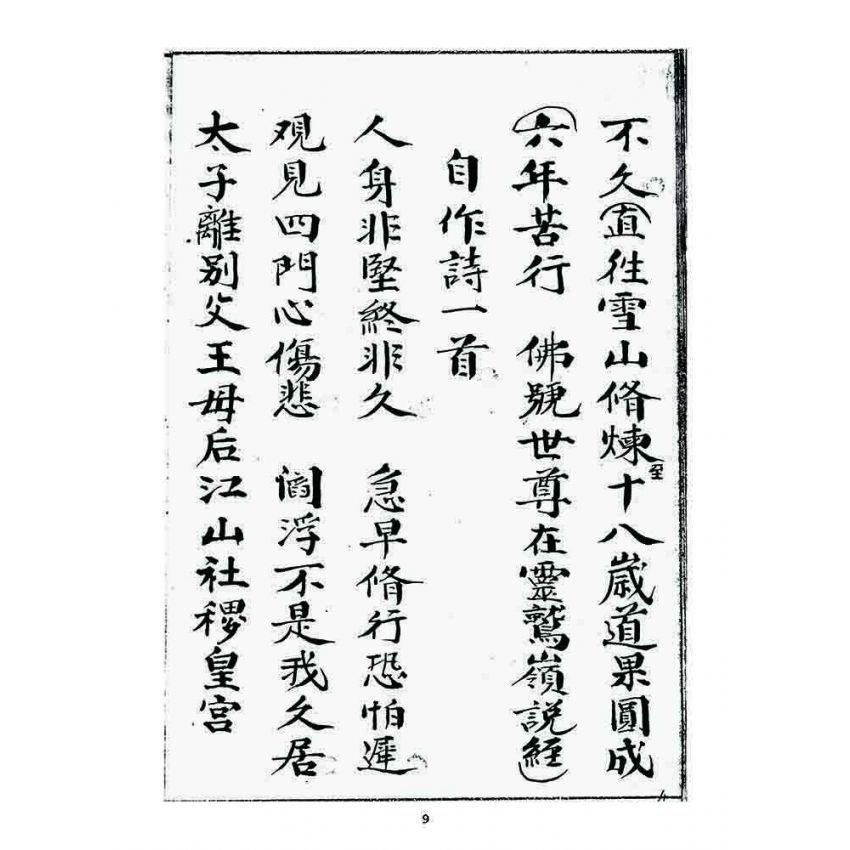 不久直徃雪山脩煉至十八歲道果圓成
六年苦行　佛號世尊在靈鷲嶺説經
自作詩一首
人身非堅終非久　急早脩行恐怕遲
观見四門心傷悲　閻浮不是我久居
太子離别父王母后江山社稷皇宫
9